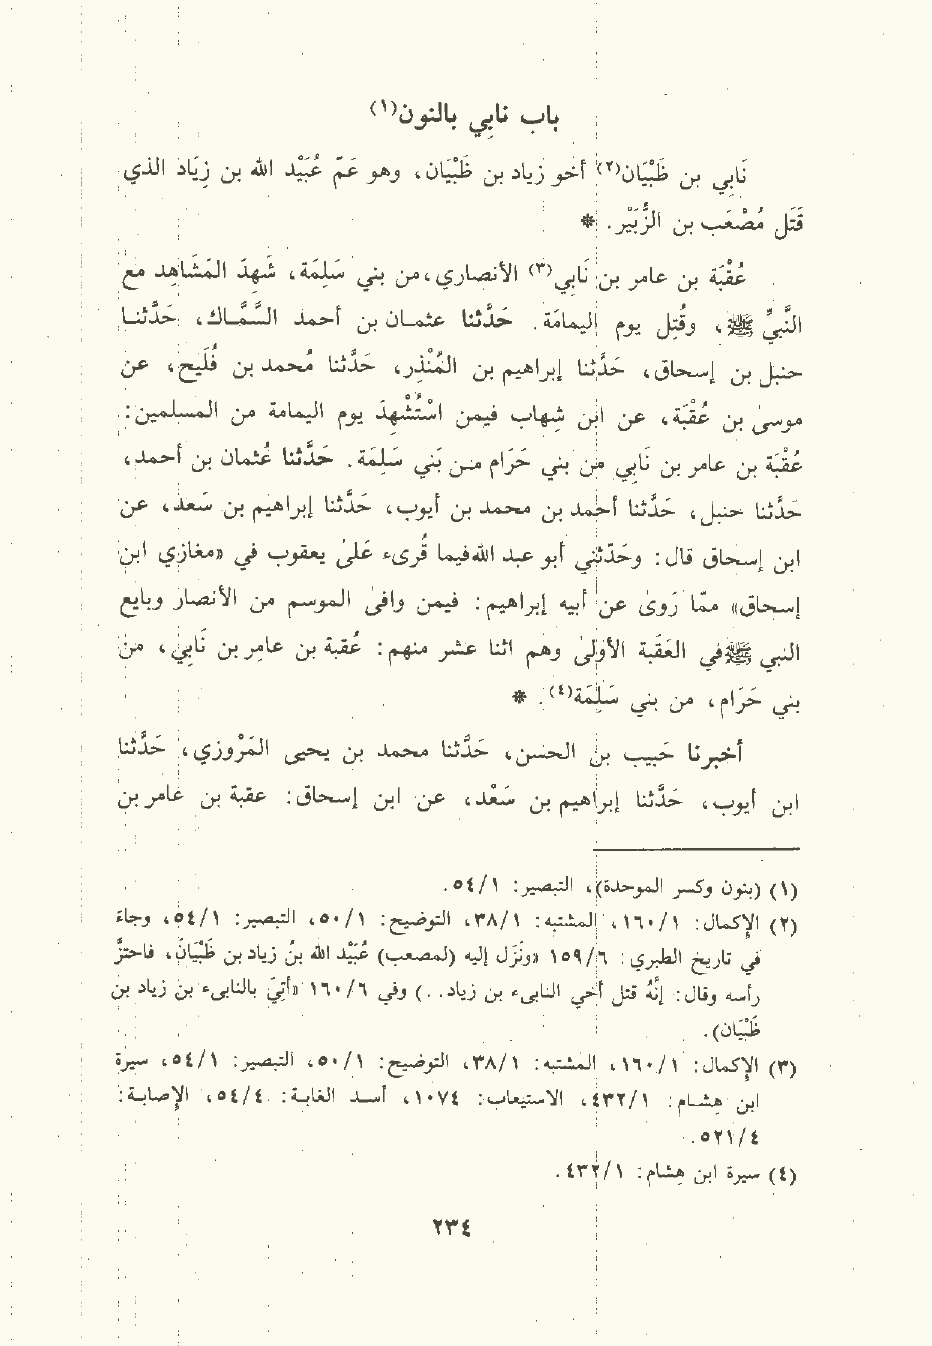 باب نابي بالنون(١)
نَابي بن ظَبْيَان(٢) أخو زياد بن ظَبْيَان، وهو عَمّ عُبَيْد الله بن زِيَاد الذي
قَتَل مُصْعَب بن الزُّبَيْر. *
عُقْبَة بن عامر بن نَابِي(٣) الأنصاري، من بني سَلِمَة، شَهِدَ المَشَاهِد مع
النَّبِيِّ ﷺ، وقُتِل يوم اليمامَة. حَدَّثنا عثمـان بن أحمد السَّمـاك، حَدَّثنـا
حنبل بن إسحاق، حَدَّثنا إبراهيم بن المُنْذِر، حَدَّثنا مُحمد بن فُلَيح، عن
موسىٰ بن عُقْبَة، عن ابن شِهاب فيمن اسْتُشْهِدَ يوم اليمامة من المسلمين:
عُقْبَة بن عامر بن نَابِي من بني حَرَام من بَني سَلِمَة. حَدَّثنا عُثمان بن أحمد،
حَدَّثنا حنبل، حَدَّثنا أحمد بن محمد بن أيوب، حَدَّثنا إبراهيم بن سَعد، عن
ابن إسحاق قال: وحَدّثني أبو عبد الله فيما قُرىء عَلىٰ يعقوب في «مغازي ابن
إسحاق» ممّا رَوىٰ عن أبيه إبراهيم: فيمن وافىٰ الموسم من الأنصار وبايع
النبي ﷺ في العَقَبة الأولىٰ وهم اثنا عشر منهم: عُقبة بن عامِر بن نَابِي، من
بني حَرَام، من بني سَلِمَة(٤). *
أخبرنا حَبيب بن الحسن، حَدَّثنا محمد بن يحيى المَرْوزي، حَدَّثنا
ابن أيوب، حَدَّثنا إبراهيم بن سَعْد، عن ابن إسحاق: عقبة بن عامر بن
(١) (بنون وكسر الموحدة)، التبصير: ٥٤/١.
(٢) الإكمال: ١٦٠/١، المشتبه: ٣٨/١، التوضيح: ٥٠/١، التبصير: ٥٤/١، وجاء
في تاريخ الطبري: ١٥٩/٦ «ونَزَل إليه (لمصعب) عُبَيْد الله بُن زياد بن ظَبْيَانَ، فاحتزَّ
رأسه وقال: إنَّهُ قتل أخي النابىء بن زياد.. ) وفي ١٦٠/٦ «أُتِيَ بالنابىء بن زياد بن
ظَبْيَان).
(٣) الإكمال: ١٦٠/١، المشتبه: ٣٨/١، التوضيح: ٥٠/١، التبصير: ٥٤/١، سيرة
ابن هِشـام: ٤٣٢/١، الاستيعاب: ١٠٧٤، أسـد الغابـة: ٥٤/٤، الإصابـة:
٥٢١/٤.
(٤) سيرة ابن هِشام: ٤٣٢/١.
٢٣٤